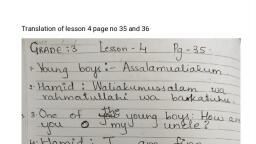 Translation of lesson 4 page no 35 and 36
GRADE:3 Lesson-4 Pg-35.
1. Young boys:- Assalamualiakum.
2. Hamid: Waliakumussalam wa
rahmatullahi wa barkatuhu.
3. One of the young boys: How are
you O my uncle?
4. Hamid: I am fine